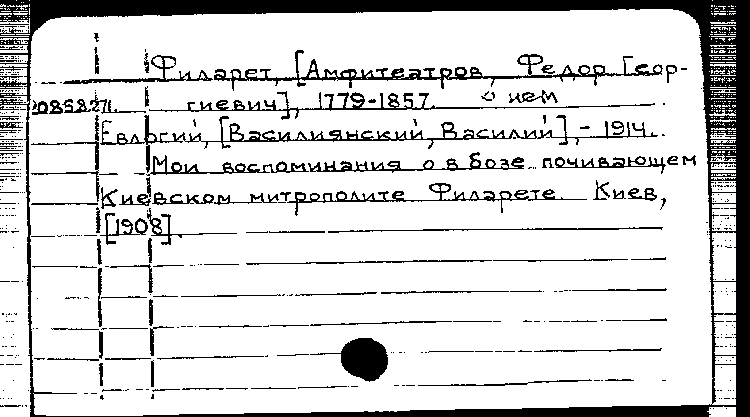 Филарет, [Амфитеатров, Федор Геор-
20858271. гиевич], 1779-1857. о нем
Евлогий, [Василиянский, Василий], - 1914.
Мои воспоминания о в Бозе почивающем
Киевском митрополите Филарете. Киев,
[1908].